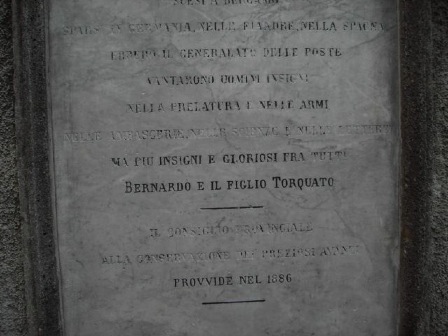 SPARSI IN GERMANIA, NELLE FIANDRE, NELLA SPAGNA
EBBERO IL GENERALATO DELLE POSTE
VANTARONO UOMINI INSIGNI
NELLA PRELATURA E NELLE ARMI
NELLE AMBASCERIE, NELLE SCIENZE E NELLE LETTERE
MA PIÙ INSIGNI E GLORIOSI FRA TUTTI
BERNARDO E IL FIGLIO TORQUATO
IL CONSIGLIO PROVINCIALE
ALLA CONSERVAZIONE DEI PREZIOSI
PROVVIDE NEL 1886